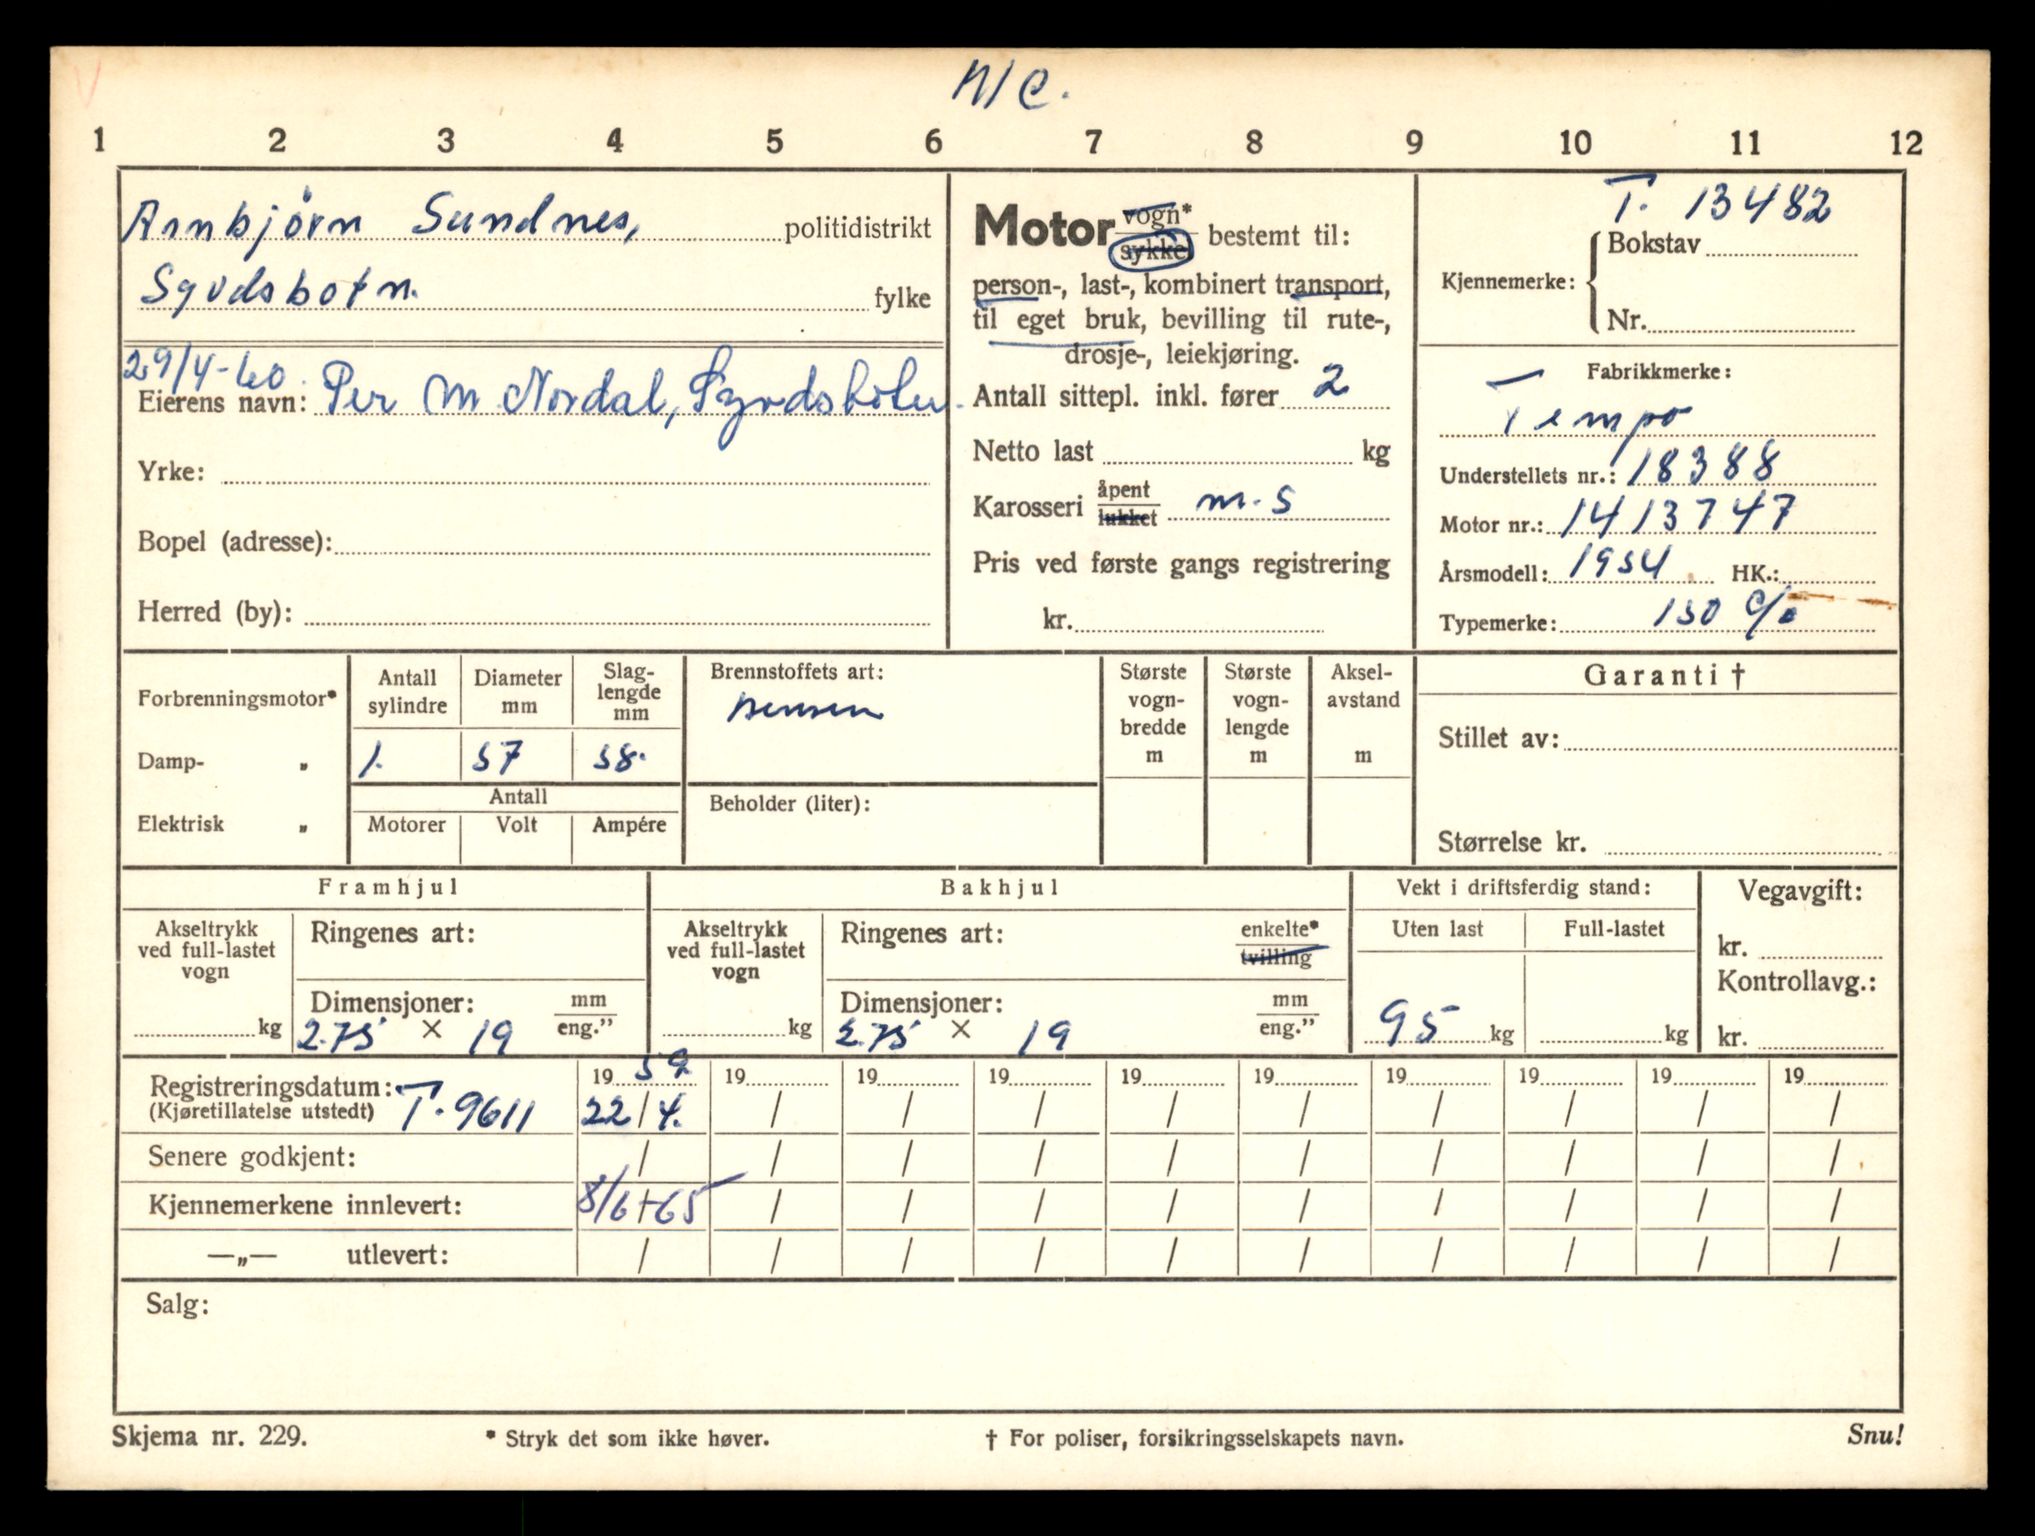 M/C.
1 2 3 4 5 6 7 8 9 10 11 12
Arnbjörn Sundnes, politidistrikt
Syvdsbotn. fylke
29/4-60.
Eierens navn: Per M. Nordal, Syvdsbotn.
Yrke:
Bopel (adresse):
Herred (by):
Motor vogn* sykkel bestemt til:
person-, last-, kombinert transport,
til eget bruk, bevilling til rute-,
drosje-, leiekjøring.
Antall sittepl. inkl. fører 2
Netto last kg
Karosseri åpent lukket m.s
Pris ved første gangs registrering
kr.
T. 13482
Kjennemerke: Bokstav
Nr.
Fabrikkmerke:
Tempo
Understellets nr.: 18388
Motor nr.: 1413747
Årsmodell: 1954 HK.:
Typemerke: 150 c/c
Forbrenningsmotor*
Damp- „
Elektrisk „
Antall sylindre
Diameter mm
Slag-
lengde
mm
1. 57 58.
Antall
Motorer Volt Ampére
Brennstoffets art:
bensin
Beholder (liter):
Største
vogn-
bredde
m
Største
vogn-
lengde
m
Aksel-
avstand
m
Garanti †
Stillet av:
Størrelse kr.
Framhjul
Akseltrykk
ved full-lastet
vogn
kg
Ringenes art:
Dimensjoner: mm eng.”
2.75 × 19
Bakhjul
Akseltrykk
ved full-lastet
vogn
kg
Ringenes art: enkelte* tvilling
Dimensjoner: mm eng.”
2.75 × 19
Vekt i driftsferdig stand:
Uten last Full-lastet
95 kg kg
Vegavgift:
kr.
Kontrollavg.:
kr.
Registreringsdatum: T. 9611 19 59 19 19 19 19 19 19 19 19 19
(Kjøretillatelse utstedt) 22/4. / / / / / / / / /
Senere godkjent: / / / / / / / / / /
Kjennemerkene innlevert: 8/6-65 / / / / / / / / /
—„— utlevert: / / / / / / / / / /
Salg:
Skjema nr. 229. * Stryk det som ikke høver. † For poliser, forsikringsselskapets navn. Snu!